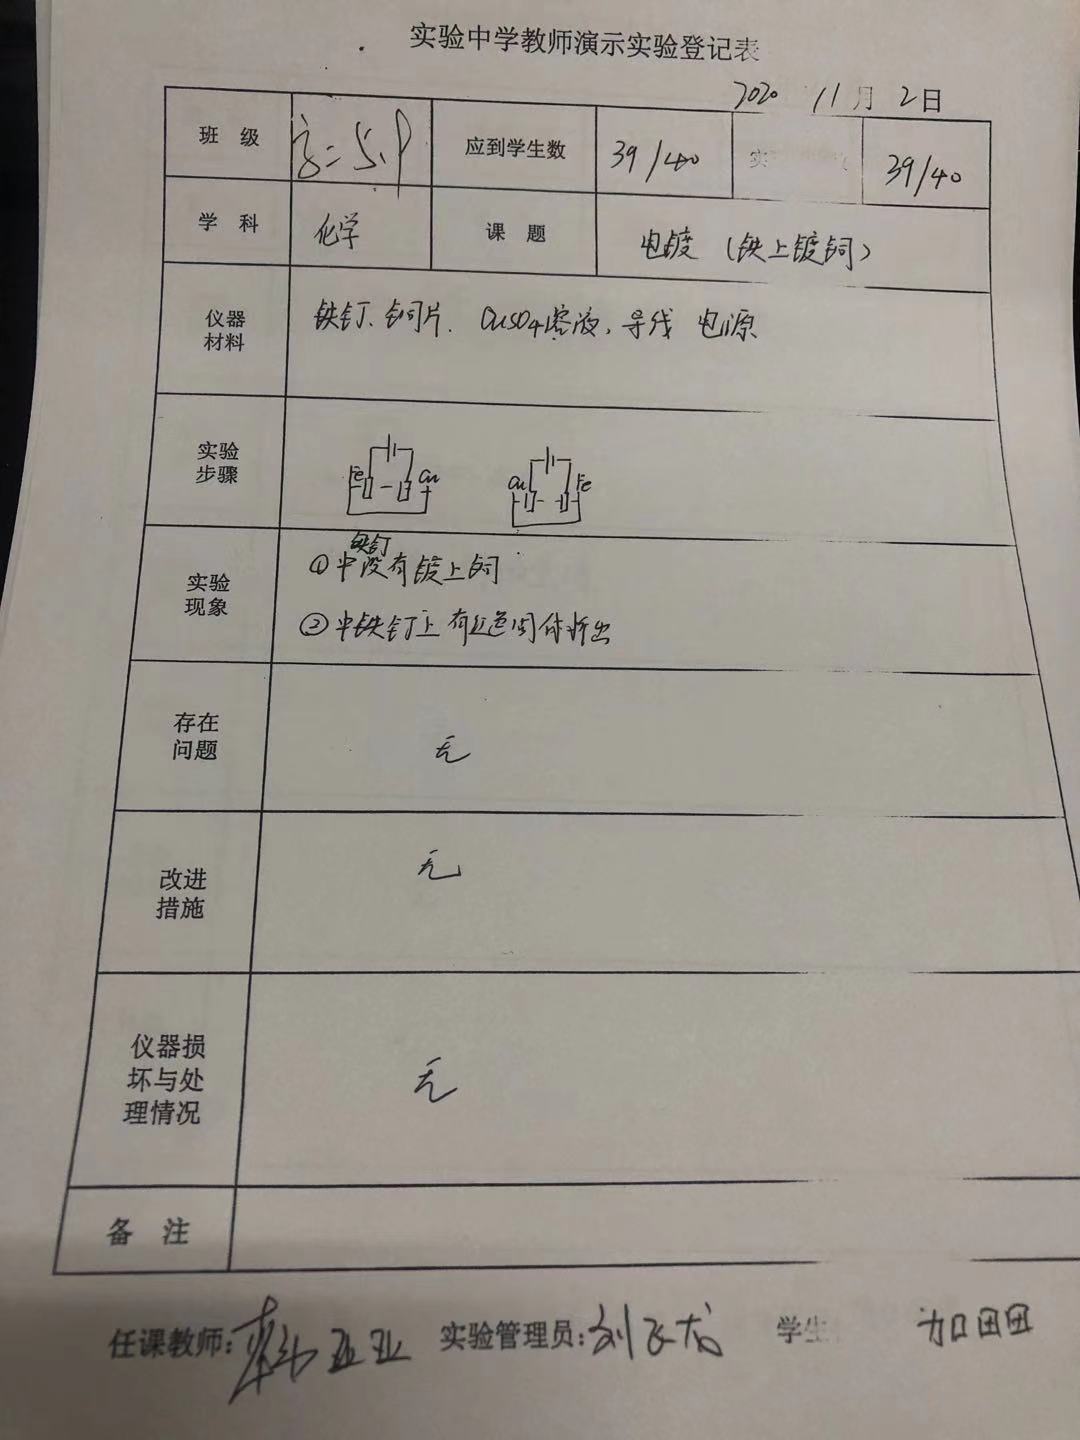 实验中学教师演示实验登记表
2020 11月 2日
班 级 高二 5.9 应到学生数 39/40 实 39/40
学 科 化学 课 题 电镀（铁上镀铜）
仪器
材料
铁钉、铜片. CuSO4溶液, 导线 电源
实验
步骤
Fe Cu Cu Fe
实验
现象
铁钉
①中没有镀上铜
②中铁钉上有红色固体析出
存在
问题
无
改进
措施
无
仪器损
坏与处
理情况
无
备 注
任课教师: 亚亚 实验管理员: 刘飞龙 学生